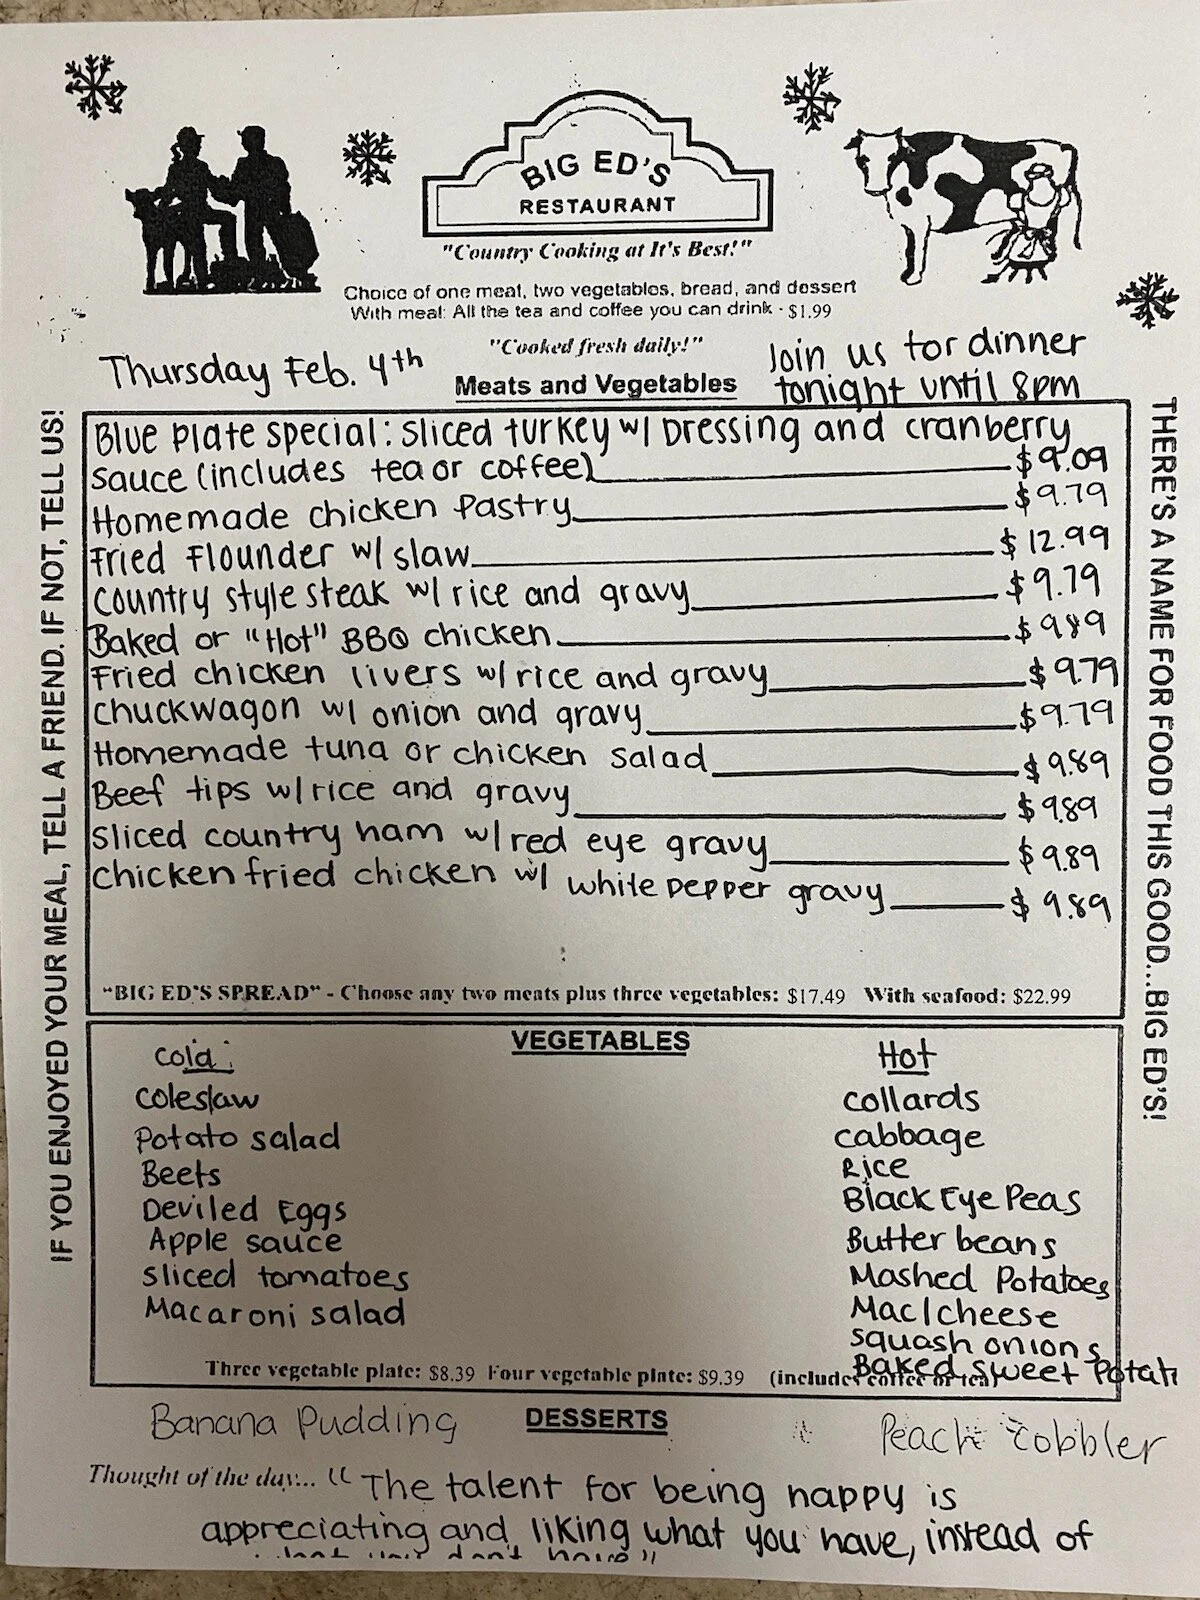 BIG ED'S
RESTAURANT
"Country Cooking at It's Best!"
Choice of one meat, two vegetables, bread, and dessert
With meal: All the tea and coffee you can drink - $1.99
"Cooked fresh daily!"
Thursday Feb. 4th
Join us for dinner
tonight until 8pm
Meats and Vegetables
IF YOU ENJOYED YOUR MEAL, TELL A FRIEND. IF NOT, TELL US!
Blue Plate Special: Sliced turkey w/ Dressing and cranberry
sauce (includes tea or coffee) $9.09
Homemade chicken Pastry $9.79
Fried Flounder w/ slaw $12.99
Country style steak w/ rice and gravy $9.79
Baked or "Hot" BBQ chicken $9.89
Fried chicken livers w/ rice and gravy $9.79
Chuckwagon w/ onion and gravy $9.79
Homemade tuna or chicken salad $9.89
Beef tips w/ rice and gravy $9.89
Sliced country ham w/ red eye gravy $9.89
Chicken fried chicken w/ white pepper gravy $9.89
"BIG ED'S SPREAD" - Choose any two meats plus three vegetables: $17.49 With seafood: $22.99
THERE'S A NAME FOR FOOD THIS GOOD...BIG ED'S!
VEGETABLES
Cold:
Coleslaw
Potato salad
Beets
Deviled Eggs
Apple sauce
Sliced tomatoes
Macaroni salad
Hot
Collards
Cabbage
Rice
Black Eye Peas
Butter beans
Mashed Potatoes
Mac/cheese
Squash onions
Baked Sweet Potat
Three vegetable plate: $8.39 Four vegetable plate: $9.39 (includes coffee or tea)
DESSERTS
Banana Pudding
Peach Cobbler
Thought of the day... "The talent for being happy is
appreciating and liking what you have, instead of
what you don't have"